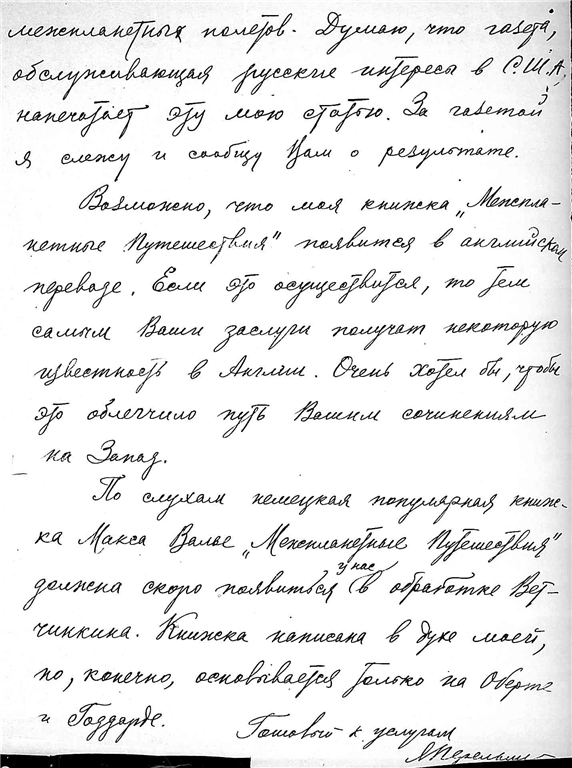 межпланетных полетов. Думаю, что газета,
обслуживающая русские интересы в С.Ш.А,
напечатает эту мою статью. За газетой
я слежу и сообщу Вам о результате.
Возможно, что моя книжка „Межпла-
нетные Путешествия" появится в английском
переводе. Если это осуществится, то тем
самым Ваши заслуги получат некоторую
известность в Англии. Очень хотел бы, чтобы
это облегчило путь Вашим сочинениям
на Запад.
По слухам немецкая популярная книж-
ка Макса Валье „Межпланетные Путешествия"
должна скоро появиться у нас в обработке Вет-
чинкина. Книжка написана в духе моей,
но, конечно, основывается только на Оберте
и Годдарде.
Готовый к услугам
ЯПерельман